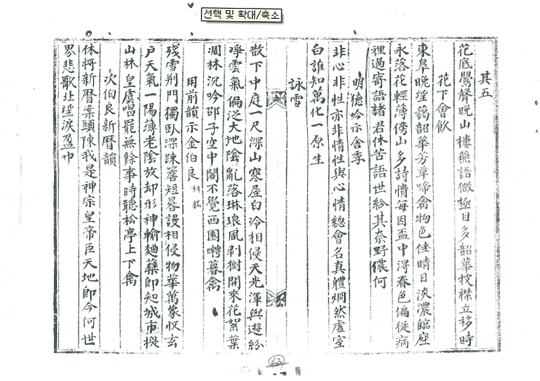 선택 및 확대/축소
其五
花底鶯聲晩山樓無語微極目多韶華披襟立移時
花下會飮
東臯晩望藹韶華芳草啼禽物色佳晴日淡濃臨座
永落花輕薄傍山多詩情每因盃中得春色偏從病
裡過寄語諸君休苦語世紛其奈野儂何
明德吟示舍季
非心非性亦非情性與心情總會名眞體烱然虛室
白誰知萬化一原生
詠雪
散下中庭一尺深山寒屋白冷相侵天光渾與遊紛
淨雲氣偏泛大地陰亂落琳琅風剥樹開來花絮葉
凋林沉吟邵子空中閣不覺西園暮禽
用前韻示金伯良
殘雪荊門獨臥深踈簷短晷謾相侵物華萬象收玄
戶天氣一陽老陰放却形神輸麯蘖卽知城市
山林皇虞唱罷無餘事時聽松亭上下禽
次伯良新曆韻
休將新曆案頭陳我是神宗皇帝臣天地卽今何世
界悲歌北望淚盈巾